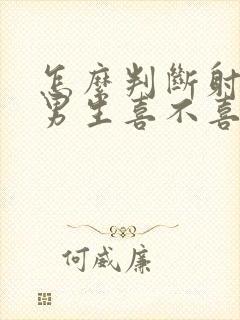 怎麼判斷射
男生喜不喜
何威廉